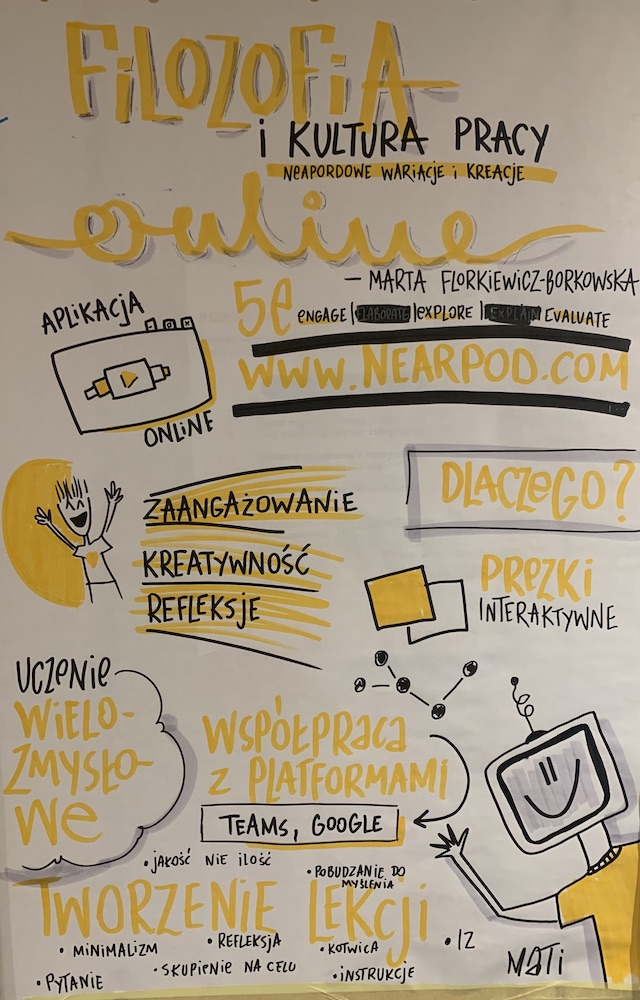 FiLOZOFiA
i KULTURA PRACY
NeAPORDOWE WARiACJE i KREACJE
online
— MARTA FLORKIEWICZ-BORKOWSKA
5e engage | ELABORATE | eXPLORE | EXPLAIN EVALUATE
WWW.NEARPOD.COM
APLiKACJA
ONLiNE
DLACZeGO?
ZAANGAŻOWANiE
KREATYWNOŚĆ
REFLEKSJe
PReZKi
INTERAKTYWNE
UCZENIe
WieLO-
ZMYSŁO-
We
WSPÓŁPRaCa
Z PLATFORMAMi
TEAMS, GOOGLE
• jAKOŚĆ NiE iLOŚĆ
• POBUDZANiE DO
MYŚLENiA
TWORZENiE LEKCji
• MiNiMALiZM
• REFLEKSJA
• KOTWiCA
• PYTANiE
• SKUPIENie NA CELU
• iNSTRUKCJE